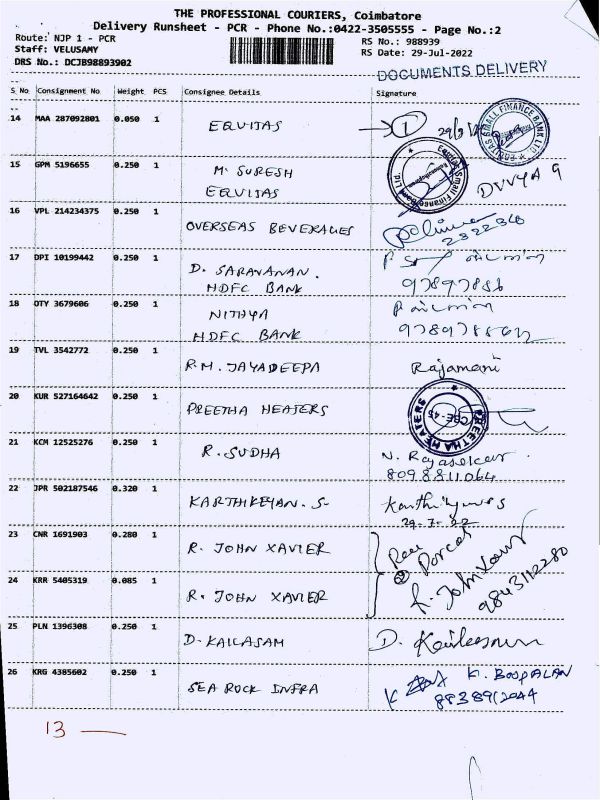 THE PROFESSIONAL COURIERS, Coimbatore
Delivery Runsheet - PCR - Phone No.:0422-3505555 - Page No.:2
Route: NJP 1 - PCR
RS No.: 988939
Staff: VELUSAMY
RS Date: 29-Jul-2022
DRS No.: DCJB98893902
DOCUMENTS DELIVERY
S No Consignment No Weight PCS Consignee Details Signature
14 MAA 287092801 0.050 1 EQUITAS 1
15 GPM 5196655 0.250 1 M. SURESH
EQUITAS DIVYA G
16 VPL 214234375 0.250 1 OVERSEAS BEVERAGES
17 DPI 10199442 0.250 1 D. SARAVANAN.
HDFC BANK
18 OTY 3679606 0.250 1 NITHYA
HDFC BANK
19 TVL 3542772 0.250 1 R.M. JAYADEEPA Rajamani
20 KUR 527164642 0.250 1 PREETHA HEATERS
PREETHA HEATERS CBE-45
21 KCM 12525276 0.250 1 R. SUDHA N. Rajasekar
8098811064
22 JPR 502187546 0.320 1 KARTHIKEYAN. S-
29-7-22
23 CNR 1691903 0.280 1 R. JOHN XAVIER
24 KRR 5405319 0.085 1 R. JOHN XAVIER R. John Xavier
9843112280
25 PLN 1396308 0.250 1 D. KAILASAM D.
26 KRG 4385602 0.250 1 SEA ROCK INFRA K. BOOPALAN
8838912044
13